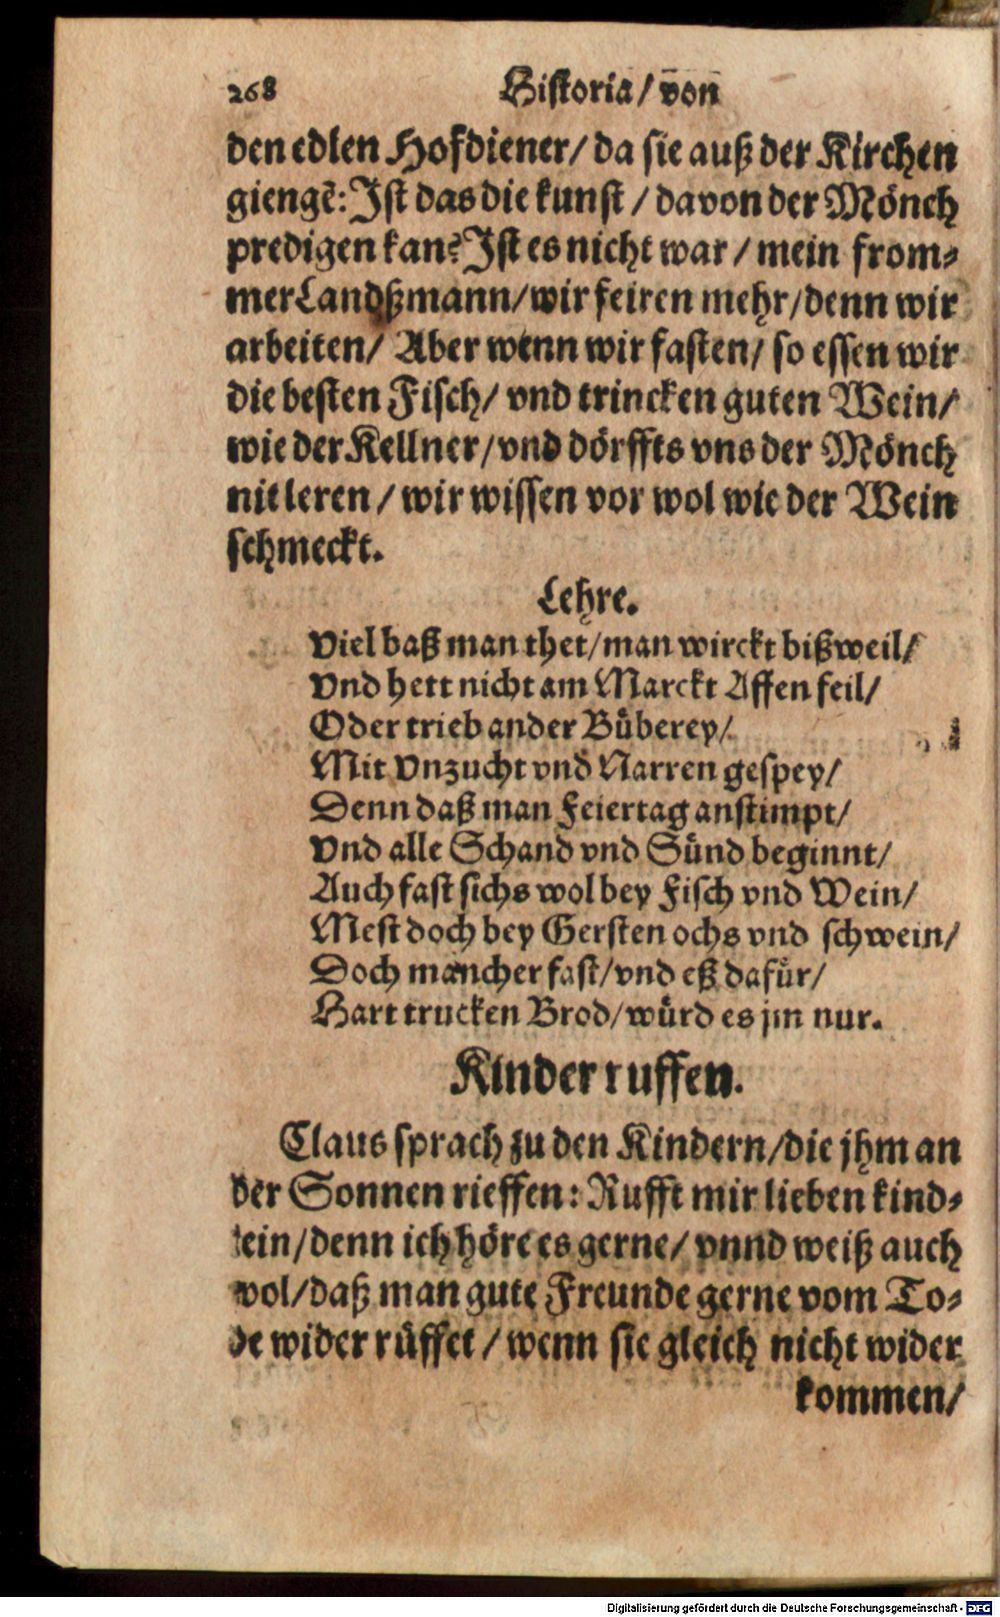 268 Historia / von
den edlen Hofdiener / da sie auß der Kirchen
giengẽ: Ist das die kunst / davon der Mönch
predigen kan? Ist es nicht war / mein from⸗
mer Landßmann / wir feiren mehr / denn wir
arbeiten / Aber wenn wir fasten / so essen wir
die besten Fisch / vnd trincken guten Wein /
wie der Kellner / vnd dörffts vns der Mönch
nit leren / wir wissen vor wol wie der Wein
schmeckt.
Lehre.
Viel baß man thet / man wirckt bißweil /
Vnd hett nicht am Marckt Affen feil /
Oder trieb ander Büberey /
Mit Vnzucht vnd Narren gespey /
Denn daß man Feiertag anstimpt /
Vnd alle Schand vnd Sünd beginnt /
Auch fast sichs wol bey Fisch vnd Wein /
Mest doch bey Gersten ochs vnd schwein /
Doch mancher fast / vnd eß dafür /
Hart trucken Brod / würd es jm nur.
Kinder ruffen.
Claus sprach zu den Kindern / die jhm an
der Sonnen rieffen: Rufft mir lieben kind⸗
lein / denn ich höre es gerne / vnnd weiß auch
wol / daß man gute Freunde gerne vom To⸗
de wider rüffet / wenn sie gleich nicht wider
kommen /
Digitalisierung gefördert durch die Deutsche Forschungsgemeinschaft - DFG